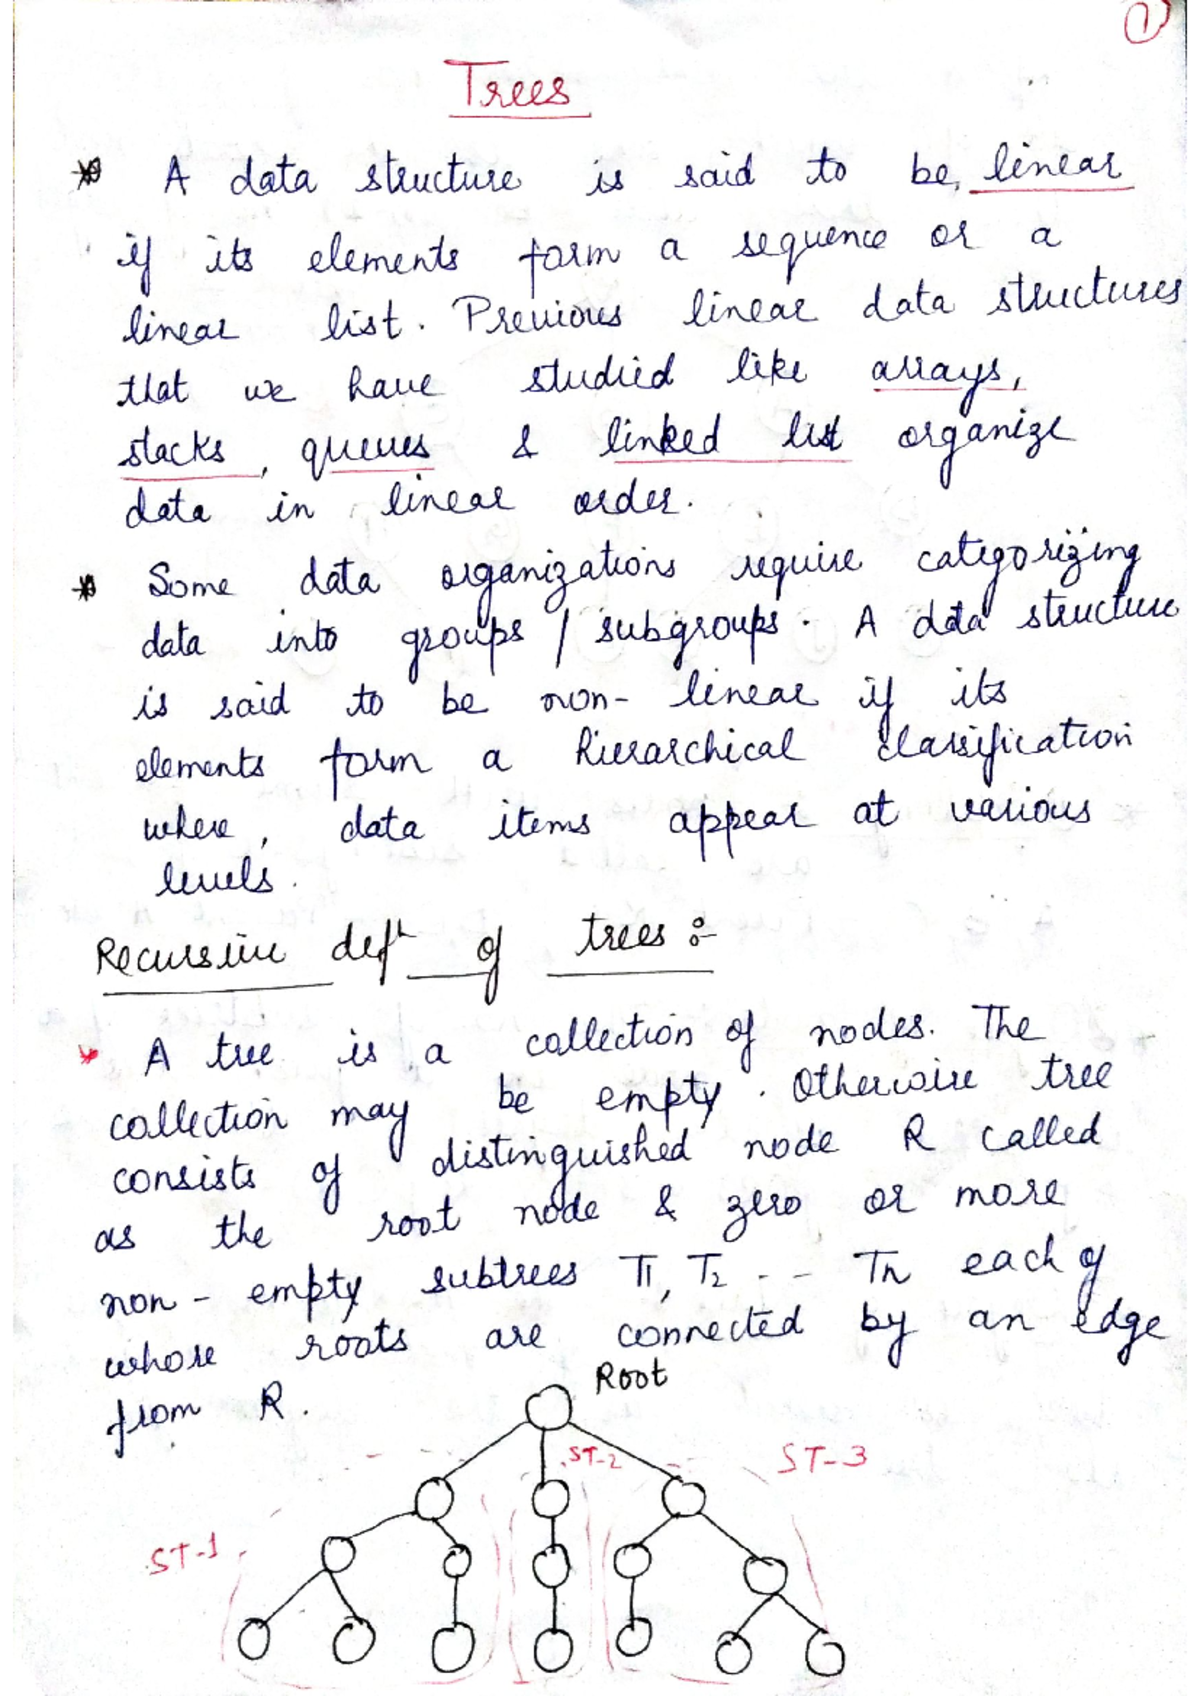 1
Trees
* A data structure is said to be, linear
if its elements form a sequence or a
linear list. Previous linear data structures
that we have studied like arrays,
stacks, queues & linked list organize
data in linear order.
* Some data organizations require categorizing
data into groups / subgroups. A data structure
is said to be non-linear if its
elements form a hierarchical classification
where, data items appear at various
levels.
Recursive defn of trees :-
* A tree is a collection of nodes. The
collection may be empty. Otherwise tree
consists of distinguished node R called
as the root node & zero or more
non-empty subtrees T1, T2 - - Tn each of
whose roots are connected by an edge
from R.
Root
ST-2
ST-3
ST-1